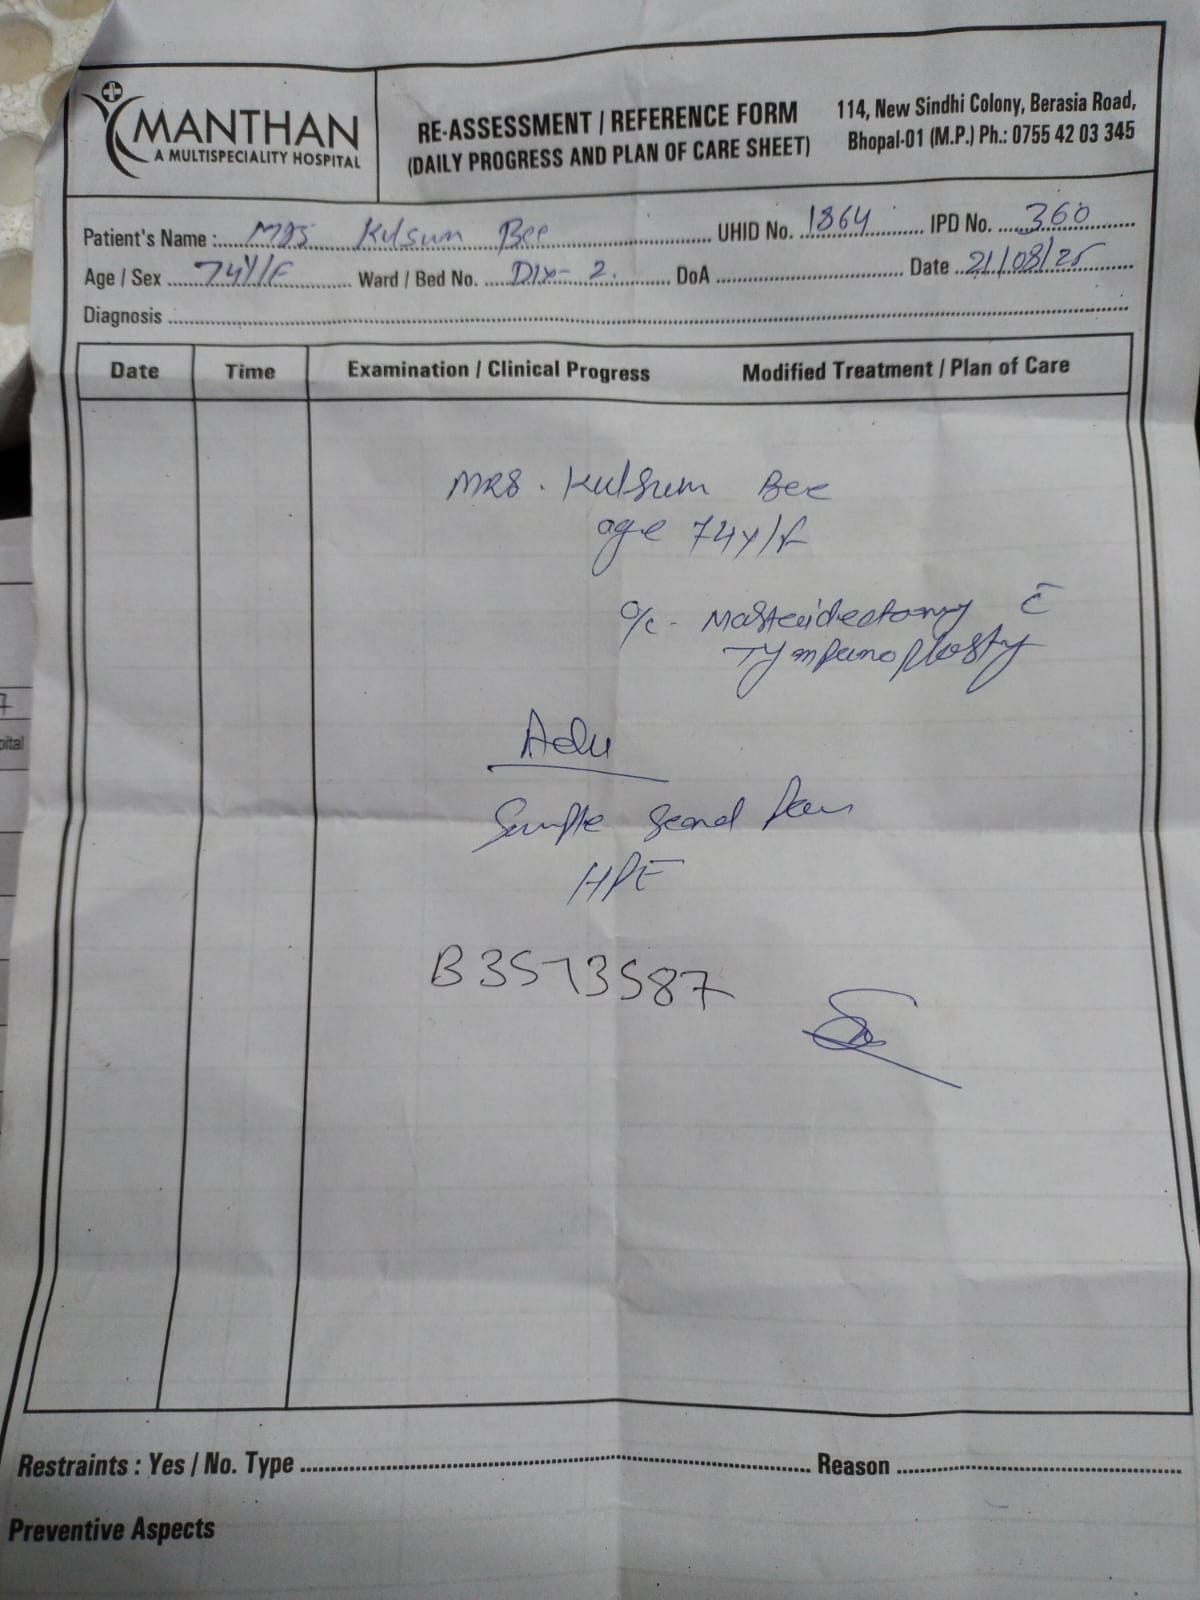 MANTHAN
A MULTISPECIALITY HOSPITAL
RE-ASSESSMENT / REFERENCE FORM
(DAILY PROGRESS AND PLAN OF CARE SHEET)
114, New Sindhi Colony, Berasia Road,
Bhopal-01 (M.P.) Ph.: 0755 42 03 345
Patient's Name : Mrs Kulsum Bee UHID No. 1864 IPD No. 360
Age / Sex 74Y/F Ward / Bed No. Dlx- 2. DoA Date 21/08/25
Diagnosis
Date Time Examination / Clinical Progress Modified Treatment / Plan of Care
MRS. Kulsum Bee
age 74y/f
Mastoidectomy c̄
Tympanoplasty
Adv
Sample send for
HPE
B3573587
Restraints : Yes / No. Type Reason
Preventive Aspects
pital